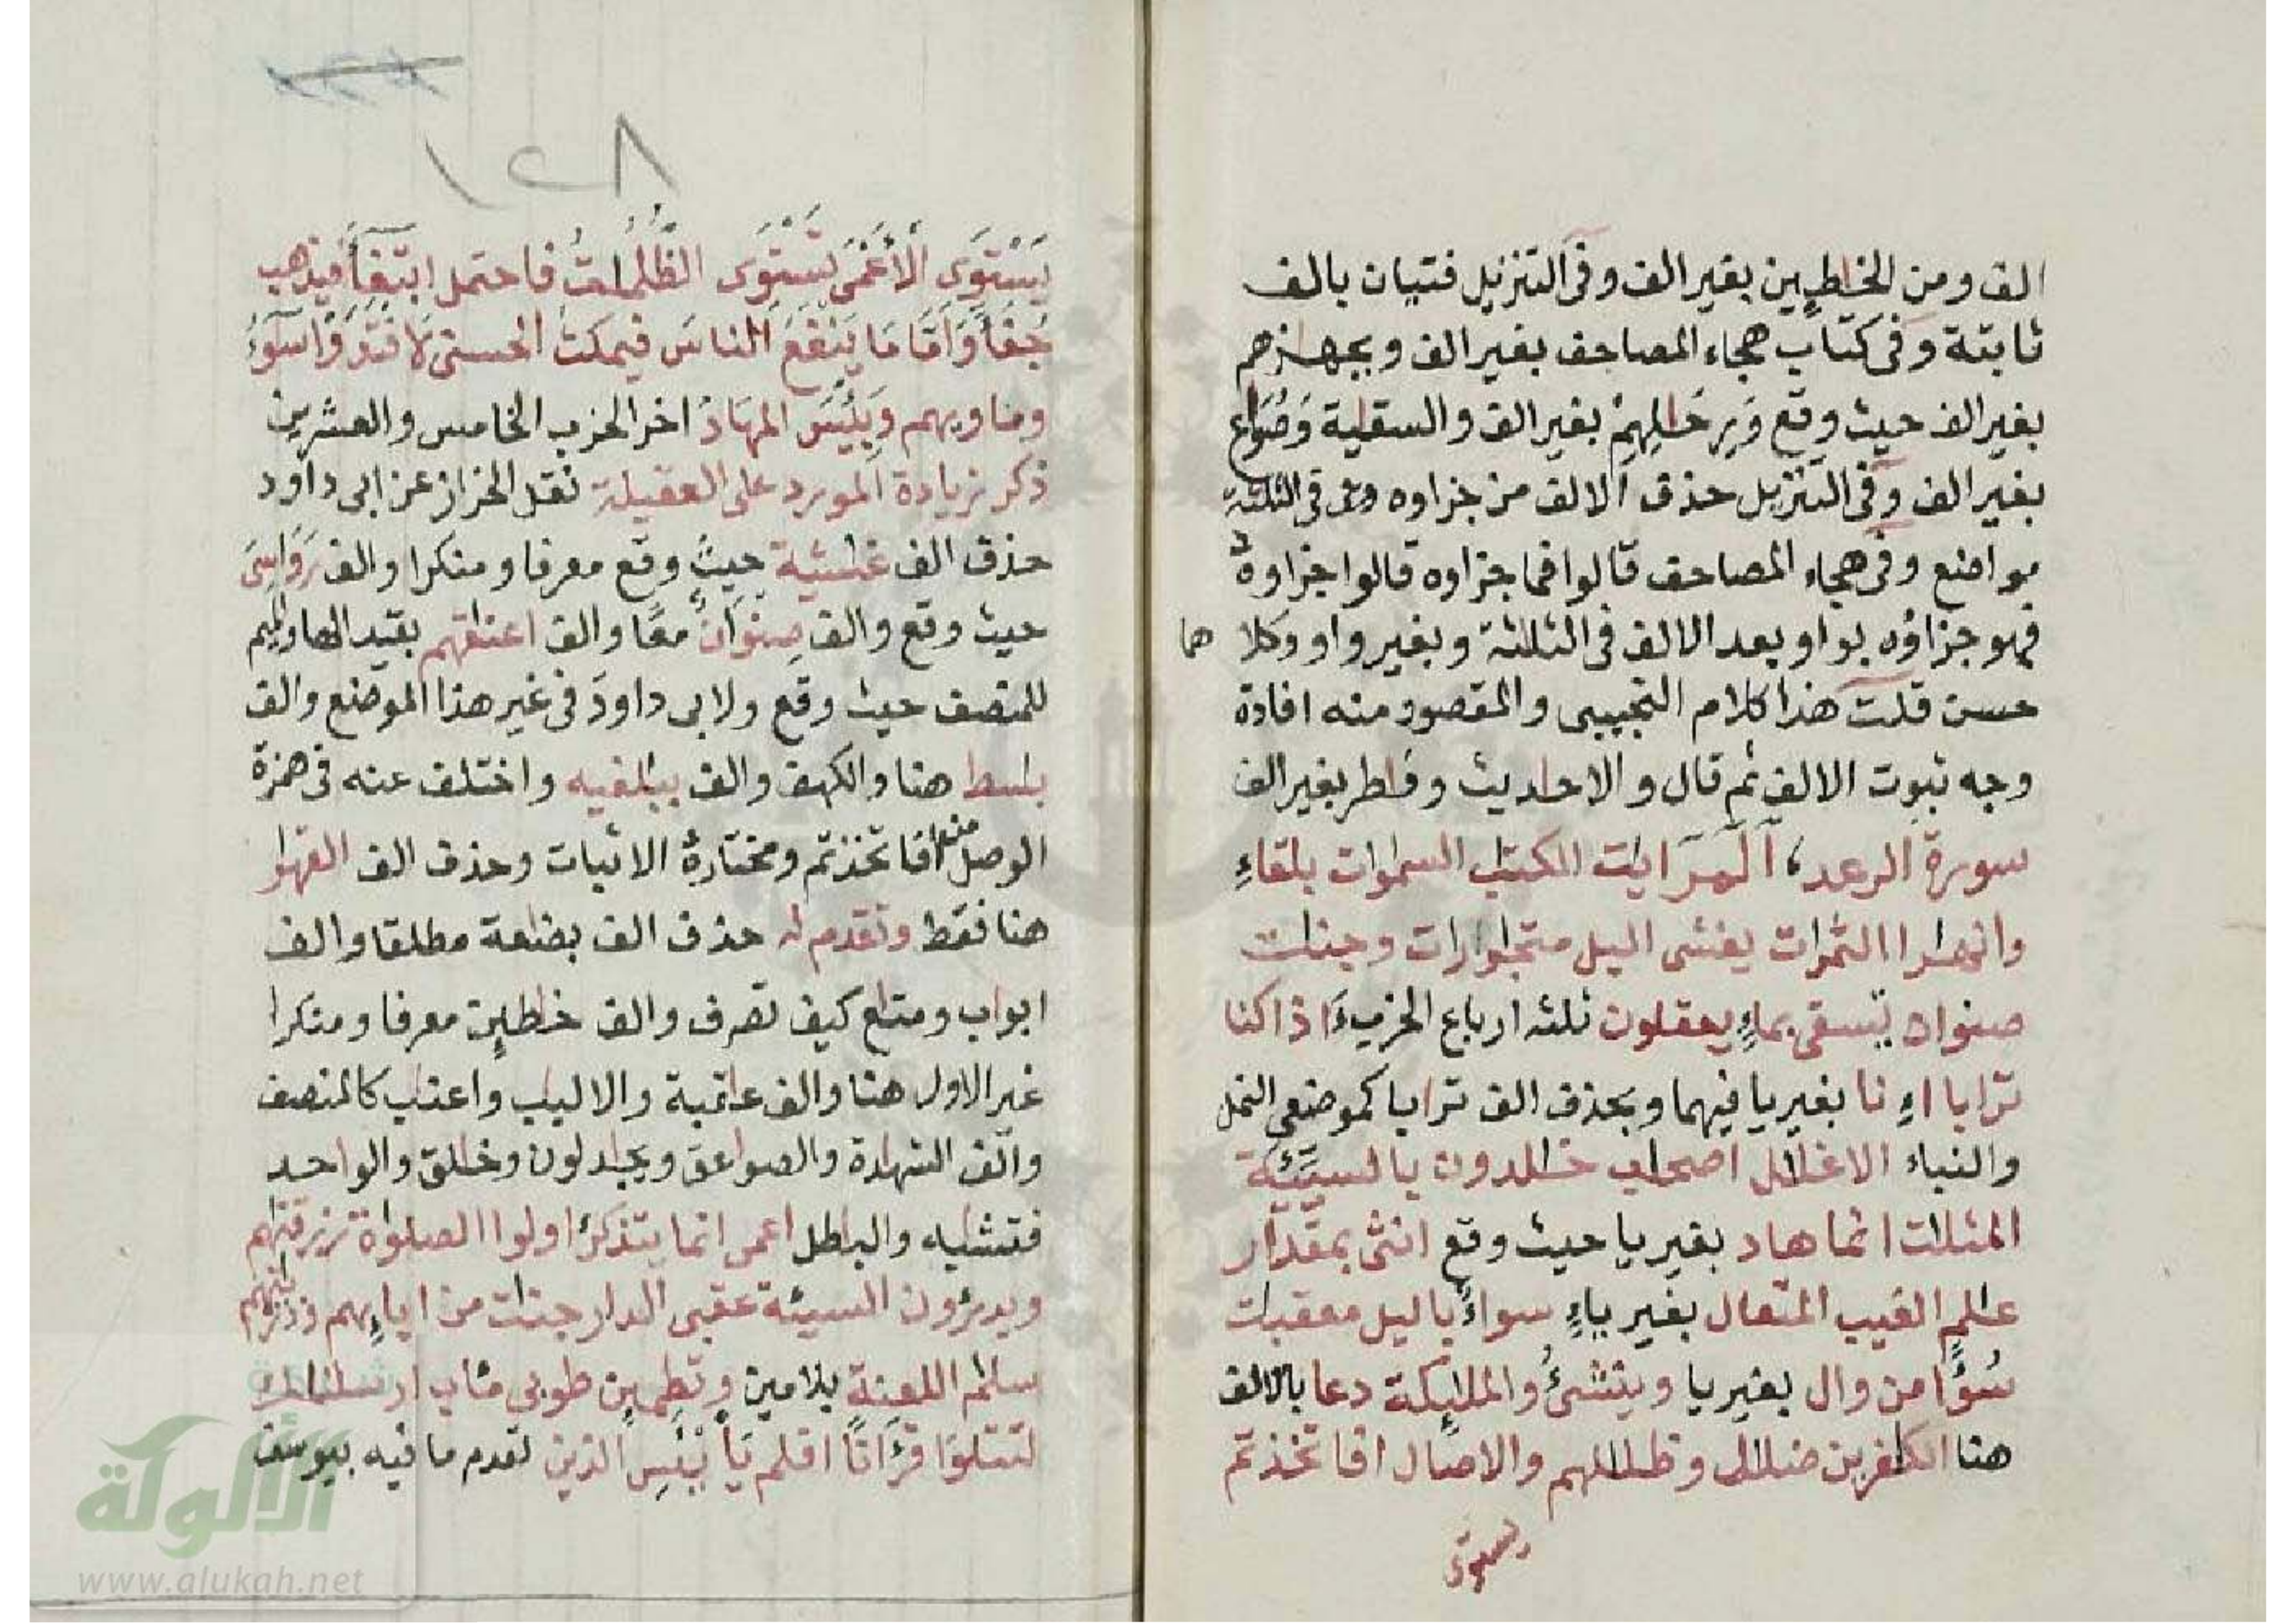 الف ومن الخطين بغير الف وفى التنزيل فتيان بالف
ثابتة وفى كتاب هجاء المصاحف بغير الف وبجهزهم
بغير الف حيث وقع وَبرحَلِهِمْ بغير الف والسقاية وَصُوَاع
بغير الف وفى التنزيل حذف الالف من جزاوه فى الثلثة
مواضع وفى هجاء المصاحف قالوا فما جزاوه قالوا جزاوه
فهو جزاؤه بواو بعد الالف فى الثلثة وبغير واو وكلاهما
حسن قلت هذا كلام التجيبى والمقصود منه افادة
وجه ثبوت الالف ثم قال والاحاديث وفاطر بغير الف
سورة الرعد، الٓمٓر ايات الكتاب السموات بلقاءِ
وانهارا الثمرات يغشى اليل متجاورات وجنات
صنوان تسقى بماءٍ يعقلون ثلثه ارباع الحزب ءَاذا كنا
ترابا اءِنا بغير يا فيهما وبحذف الف ترابا كموضعى النمل
والنباء الاغلال اصحاب خالدون بالسيّئة
المثلات انما هاد بغير يا حيث وقع انثى بمقدار
عالم الغيب المتعال بغير ياءٍ سواءٌ باليل معقبات
سُوٓءًا من وال بغير يا وينشئُ والملئكة دعا بالالف
هنا الكفرين ضلال وظلالهم والاصال افاتخذتم
يستوى
١٢٨
يَسْتَوِى الْأَعْمَى تَسْتَوِى الظُّلُمَاتُ فاحتمل ابتغاءَ فيذهب
جُفَآءً وَاَمَّا مَا يَنْفَعُ النَّاسَ فيمكث الحسنى لَافْتَدَوْا سُوٓءُ
وماويهم وَبِئْسَ المِهَادُ اخر الحزب الخامس والعشرين
ذكر زيادة المورد على العقيلة نقل الخراز عن ابى داود
حذف الف غشية حيث وقع معرفا ومنكرا والف رَوَاسِىَ
حيث وقع والف صِنْوَانٌ معًا والف اعناقهم بقيد الها والميم
للمنصف حيث وقع ولابى داودَ فى غير هذا الموضع والف
باسط هنا والكهف والف ببالغيه واختلف عنه فى همزة
الوصل من افاتخذتم ومختارهُ الاثبات وحذف الف القهار
هنا فقط وتقدم له حذف الف بضاعة مطلقا والف
ابواب ومتاع كيف تصرف والف خاطين معرفا ومنكرا
غير الاول هنا والف عاقبة والالباب واعناب كالمنصف
والف الشهادة والصواعق ويجادلون وخالق والواحد
فتشابه والباطل اعمى انما يتذكرُ اولوا الصلوة رزقناهم
ويدرؤن السيئة عقبى الدار جنات من اباءِيهم وذريتهم
سلام اللعنة بلامين وتطمين طوبى مئاب ارسلناك
لتتلوَا قرْءَانًا افلم يَاْيْئَسِ الذين تقدم ما فيه بيوسف
الألوكة
www.alukah.net